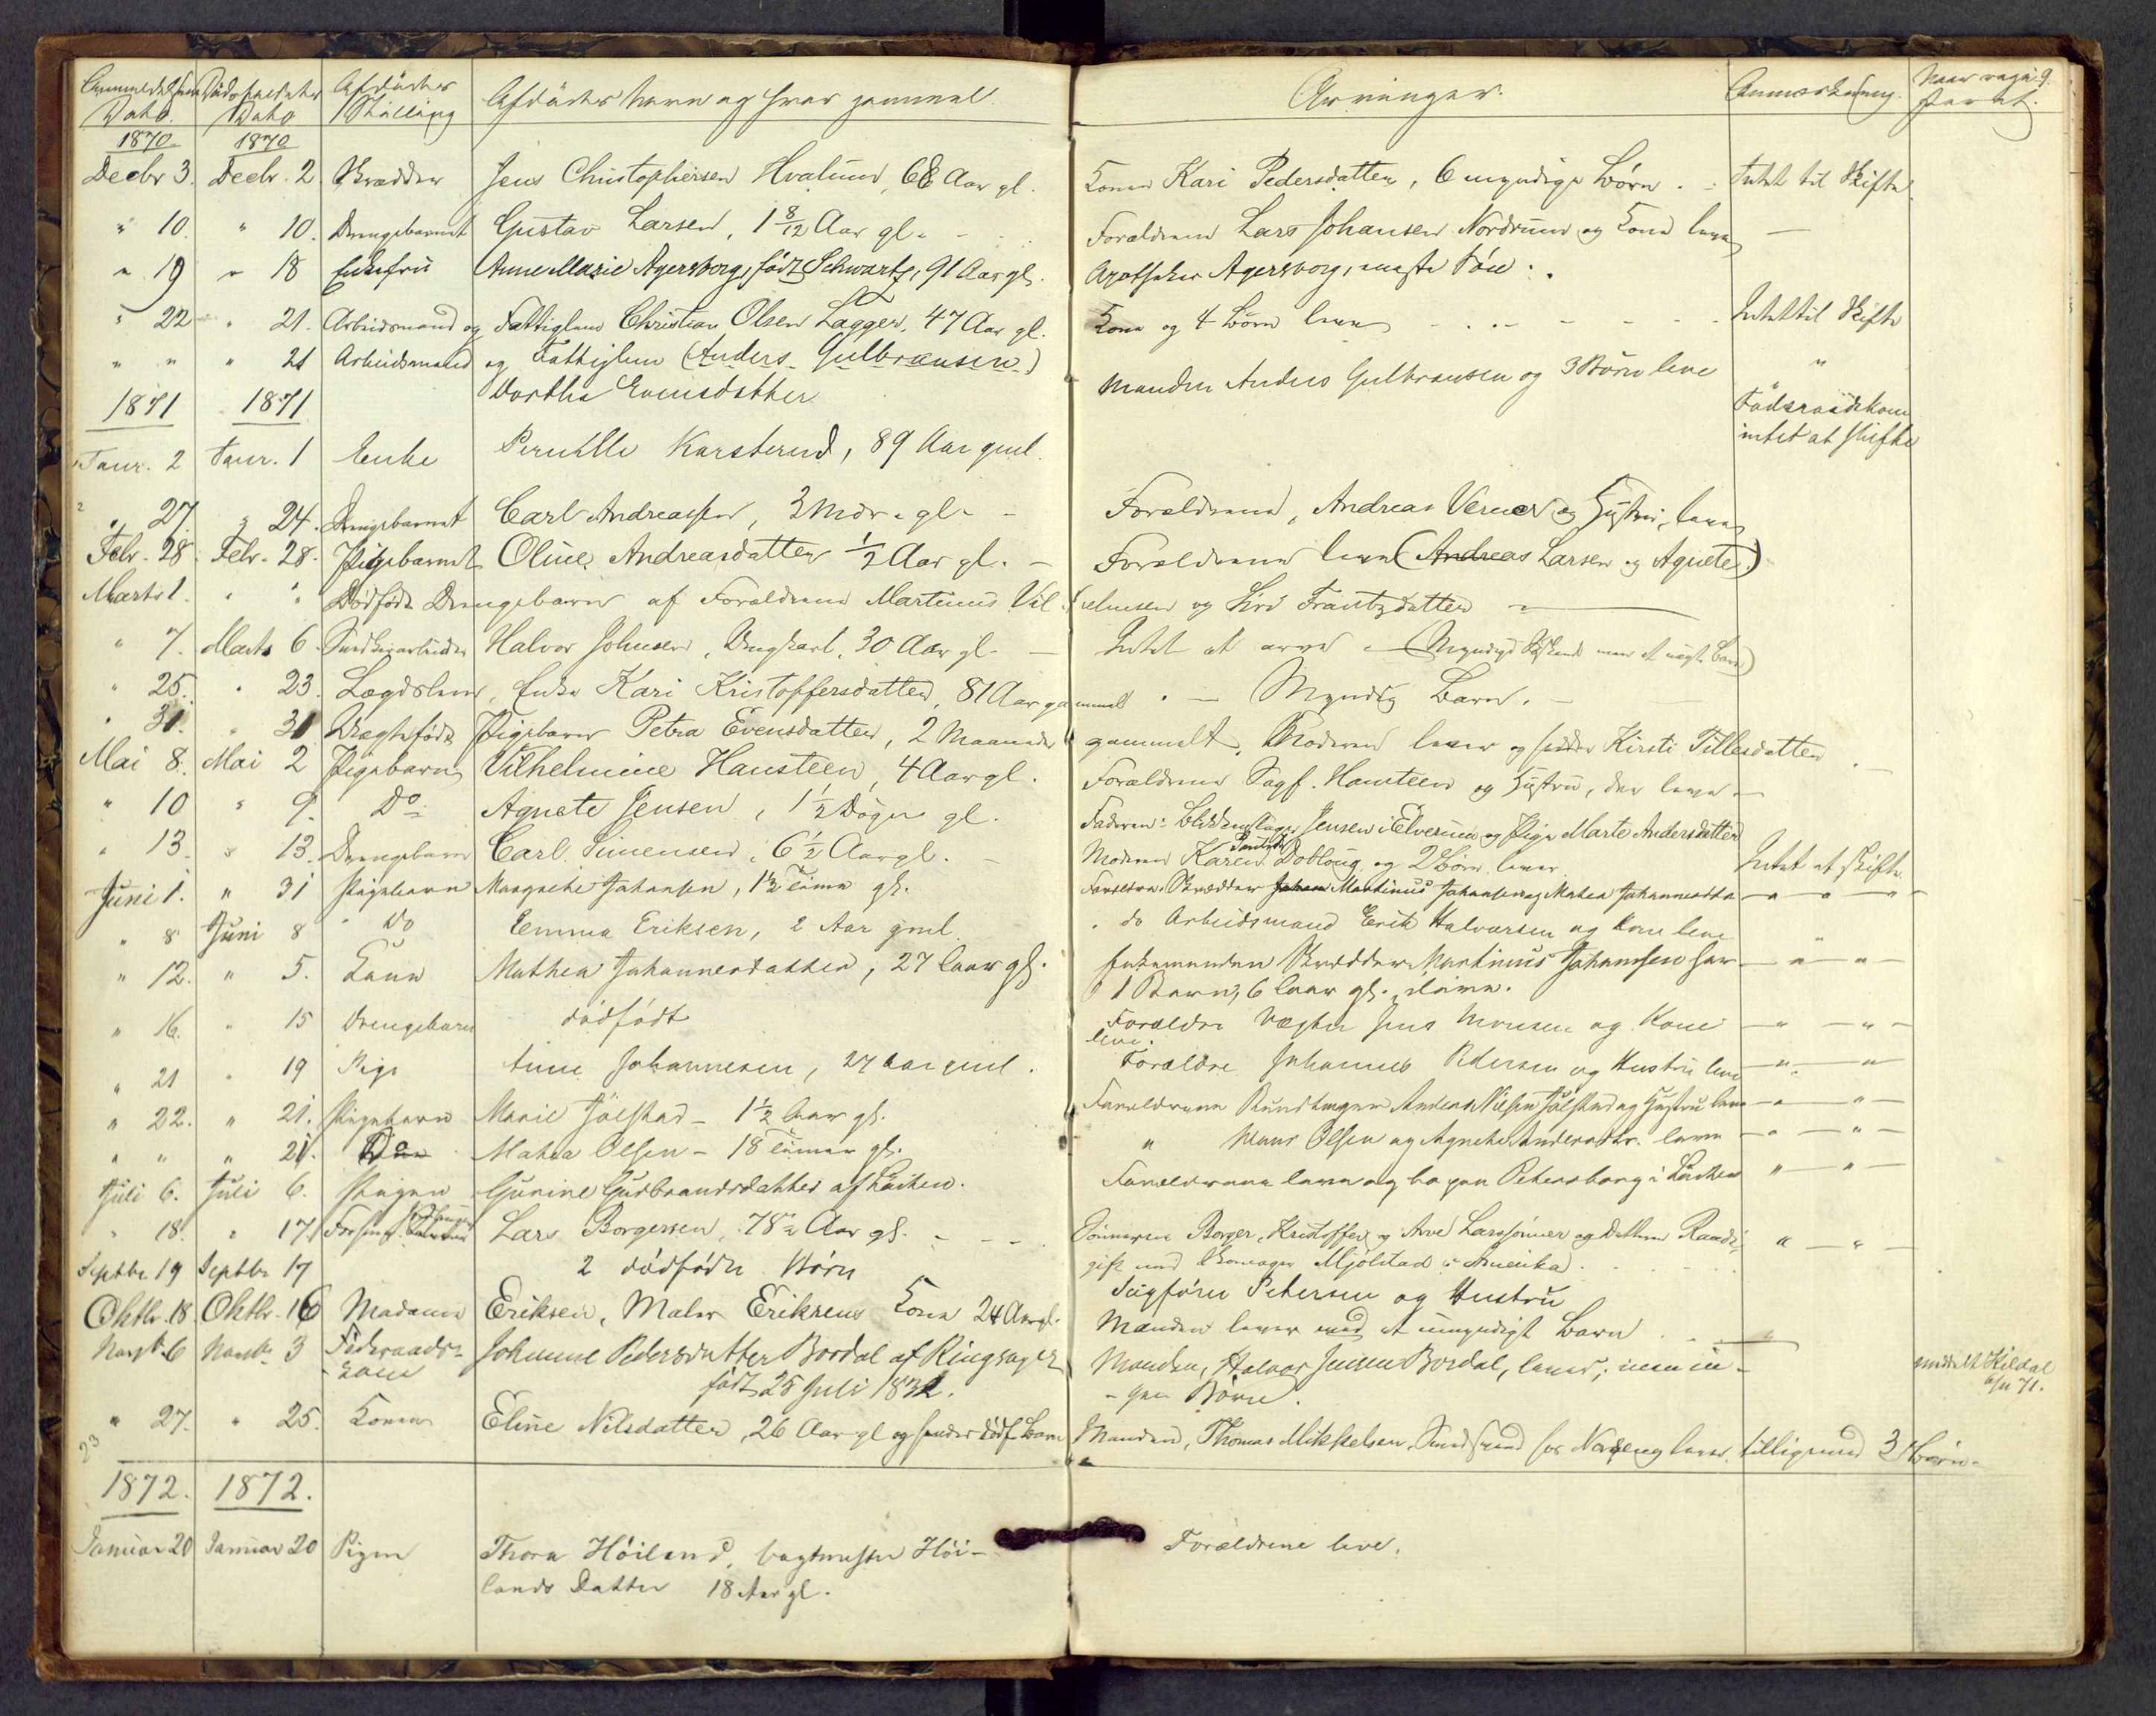 Anmeldelsens Dødsfaldets Afdødes Afdødes Navn og hvor gammel. Arvinger. Anmærkning. Naar
Dato. Dato Stilling
1870. 1870
Decbr 3. Decbr. 2. Skrædder Jens Christophersen Hvalund, 68 Aar gl. Konen Kari Pedersdatter, 6 myndige Børn. Intet til Skifte
" 10. " 10. Drengebarnet Gustav Larsen, 1 8/12 Aar gl. - Forældrene Lars Johansen Nordrum og Kone leve —
" 19 " 18 Enkefru Anne Marie Agersborg, født Schwartz, 91 Aar gl. Apotheker Agersborg, eneste Søn.
" 22 " 21. Arbeidsmand og Fattiglem Christian Olsen Lagger, 47 Aar gl. Kone og 4 Børn leve - - - - Intet til Skifte
" " " 21 Arbeidsmand og Fattiglem (Anders Gulbransen) Manden Anders Gulbransen og 3 Børn leve "
Dorthe Evensdatter
1871 1871 Føderaadskone
intet at skifte
Janr. 2 Janr. 1 Enke Pernille Karsterud, 89 Aar gml.
" 27. " 24. Drengebarnet Carl Andreassen, 3 Mdr. gl. - Forældrene, Andreas Verner og Hustru, leve
Febr. 28. Febr. 28. Pigebarnet Oline Andreasdatter 1/2 Aar gl. - Forældrene leve (Andreas Larsen og Agnete)
Marts 1. " " Dødfødt Drengebarn af Forældrene Martinus Vilhelmsen og Siri Frantzdatter —
" 7. Marts 6. Halvor Johnsen, Ungkarl, 30 Aar gl. - Intet at arve - (Myndige Søskende men et uægte Barn)
" 25. " 23. Lægdslem, Enke Kari Kristoffersdatter, 81 Aar gammel. - Myndig Barn. -
" 31. " 31 Uægtefødt Pigebarn Petra Evensdatter, 2 Maaneder gammelt. Moderen lever og hedder Kirsti Tillesdatter
Mai 8. Mai 2 Pigebarn Vilhelmine Hansteen, 4 Aar gl. Forældrene Sagf. Hansteen og Hustru, der leve —
" 10 " 9. Do Agnete Jensen, 1 1/2 Døgn gl. Faderen: Blikkenslager Jensen i Elverum og Pige Marte Andersdatter
" 13. " 13. Drengebarn Carl Simensen, 6 1/2 Aar gl. - Moderen Karen Doblaug og 2 Børn lever. Intet at skifte.
Juni 1. " 31 Pigebarn Margrethe Johansen, 1 1/2 Time gl. Forældre. Skrædder Johan Martinus Johansen og Mathea Johannesdtr — " — " — " —
" 8 Juni 8 " Do Emma Eriksen, 2 Aar gml. " do Arbeidsmand Erik Halvorsen og Kone leve "
" 12. " 5. Kone Mathea Johannesdatter, 27 Aar gl. Enkemanden Skrædder Martinus Johansen har — " — " —
1 Barn, 6 Aar gl., ilive.
" 16. " 15 Drengebarn dødfødt Forældre Vægter Jens Monsen og Kone — " — " —
leve.
" 21 " 19 Pige Anne Johannesen, 27 Aar gml. Forældre Johannes Pedersen og Hustru leve — " — "
" 22. " 21. Pigebarn Marie Jølstad - 1 1/2 Aar gl. Forældrene Bundtmager Anders Nilsen Jølstad og Hustru leve — " — " —
" " " 21. Do Mathea Olsen - 18 Timer gl. " Hans Olsen og Agnethe Andersdtr. leve — " — " —
Juli 6. Juli 6. Pigen Gunine Gudbrandsdatter af Løiten. Forældrene leve og bo paa Petersborg i Løiten " — " —
" 18. " 17. Lars Borgersen, 78 Aar gl. - - - Sønnerne Borger, Kristoffer og Arve Larssønner og Datteren Raadi, " — " —
gift med Skomager Mjølstad i Amerika.
Septbr 19 Septbr 17 2 dødfødte Børn
Sagfører Petersen og Hustru
Oktbr. 18. Oktbr. 16 Madame Eriksen, Maler Eriksens Kone 24 Aar gl. Manden lever med et umyndigt Barn - - "
Novbr. 6 Novbr. 3 Føderaads- Johanne Pedersdatter Bordal af Ringsager Manden, Halvor Jensen Bordal, lever; men in- meddelt Kildal
kone født 25 Juli 1832. - gen Børn. 6/11 71.
" 27. " 25. Konen Eline Nilsdatter, 26 Aar gl og hendes dødf. Barn Manden, Thomas Mikkelsen, lever tilligemed 3 Børn.
23
1872. 1872.
Januar 20 Januar 20 Pigen Thora Höiland, Vagtmester Höi- Forældrene leve.
lands Datter 18 Aar gl.